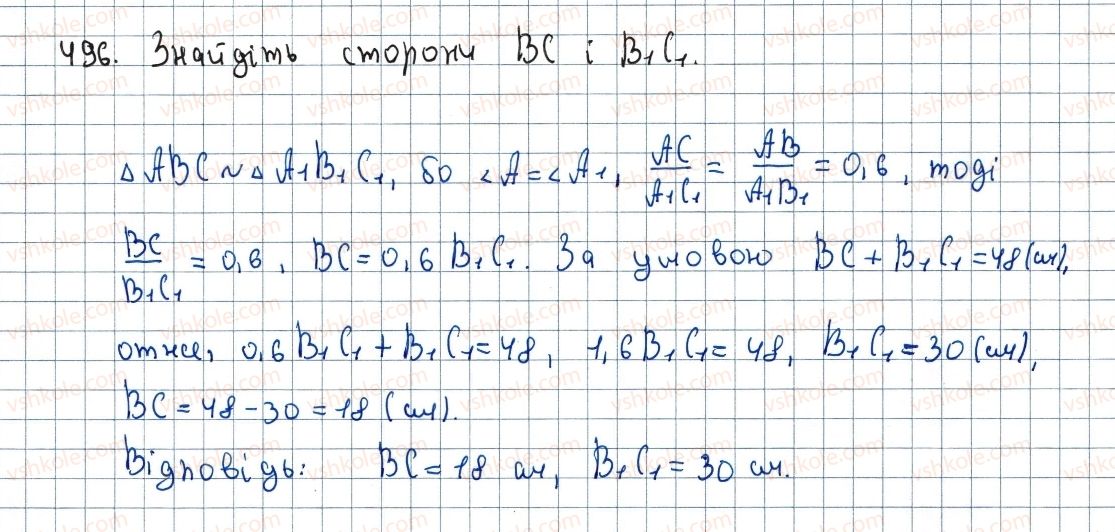 496. Знайдіть сторони BC і B₁C₁.
△ABC ~ △A₁B₁C₁, бо ∠A = ∠A₁, AC/A₁C₁ = AB/A₁B₁ = 0,6, тоді
BC/B₁C₁ = 0,6, BC = 0,6 B₁C₁. За умовою BC + B₁C₁ = 48 (см),
отже, 0,6 B₁C₁ + B₁C₁ = 48, 1,6 B₁C₁ = 48, B₁C₁ = 30 (см),
BC = 48 - 30 = 18 (см).
Відповідь: BC = 18 см, B₁C₁ = 30 см.